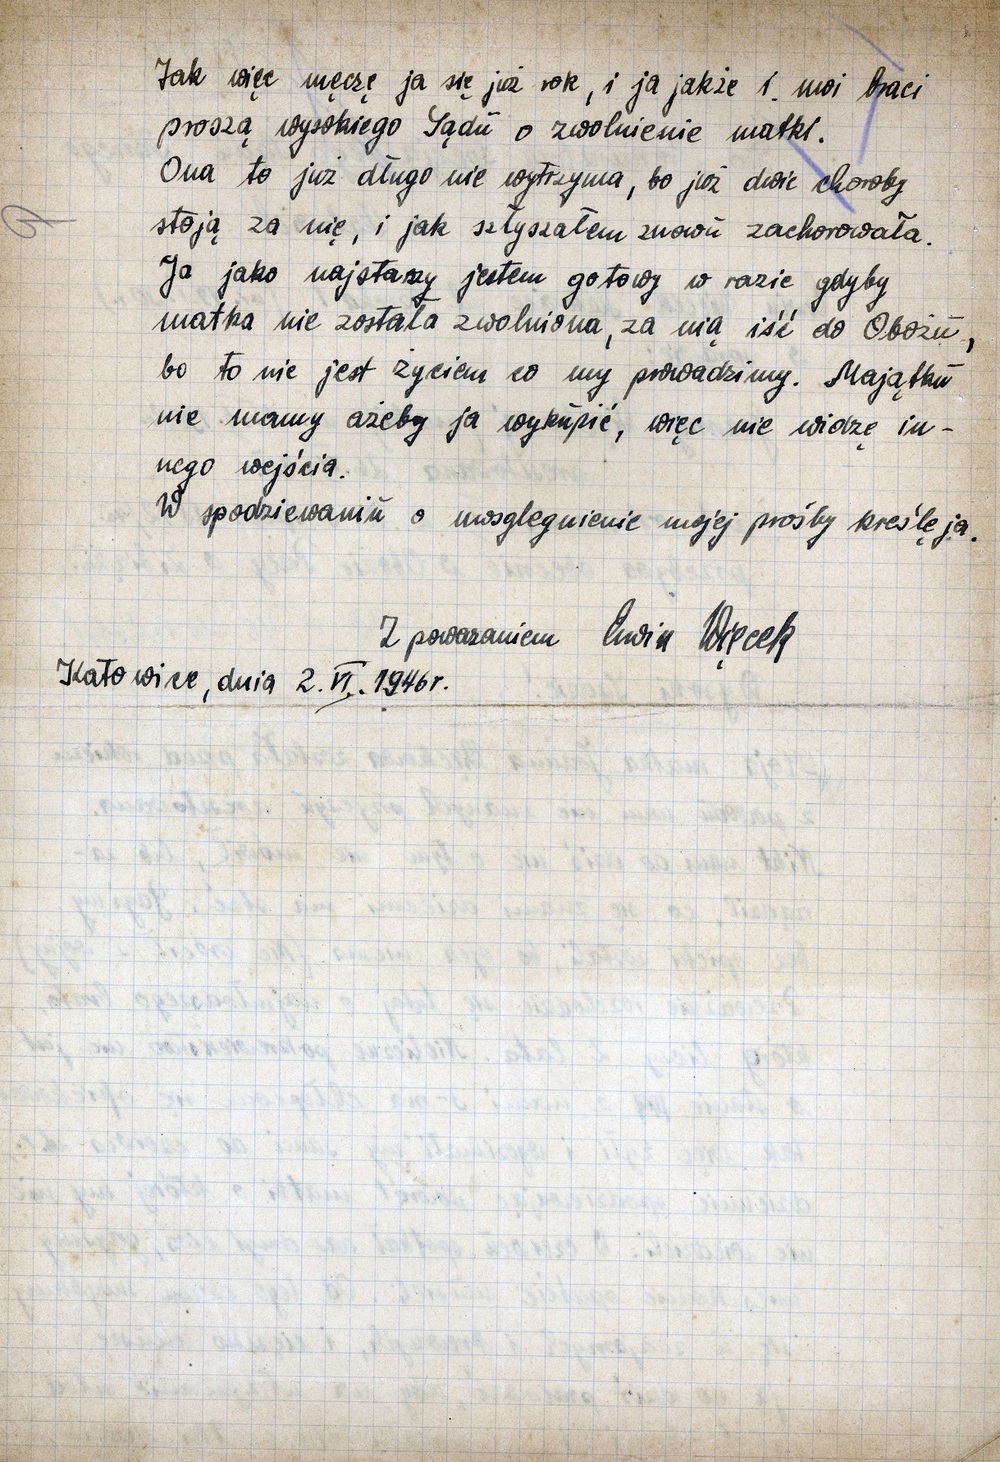 Jak więc męczę ja się już rok, i ja jakże i moi braci
proszą wysokiego Sądŭ o zwolnienie matki.
Ona to już długo nie wytrzyma, bo już dwie choroby
stoją za nię, i jak szłyszałem znowŭ zachorowała.
Ja jako najstarzy jestem gotowy w razie gdyby
matka nie została zwolniona, za nią iść do Obozŭ,
bo to nie jest życiem co my prowadzimy. Majątkŭ
nie mamy ażeby ja wykŭpić, więc nie widzę in-
nego wejścia.
W spodziewaniŭ o uwsglegnienie mojej prośby kreślę ja.
Z powarzaniem Erwin Więcek
Katowice, dnia 2. VI. 1946 r.